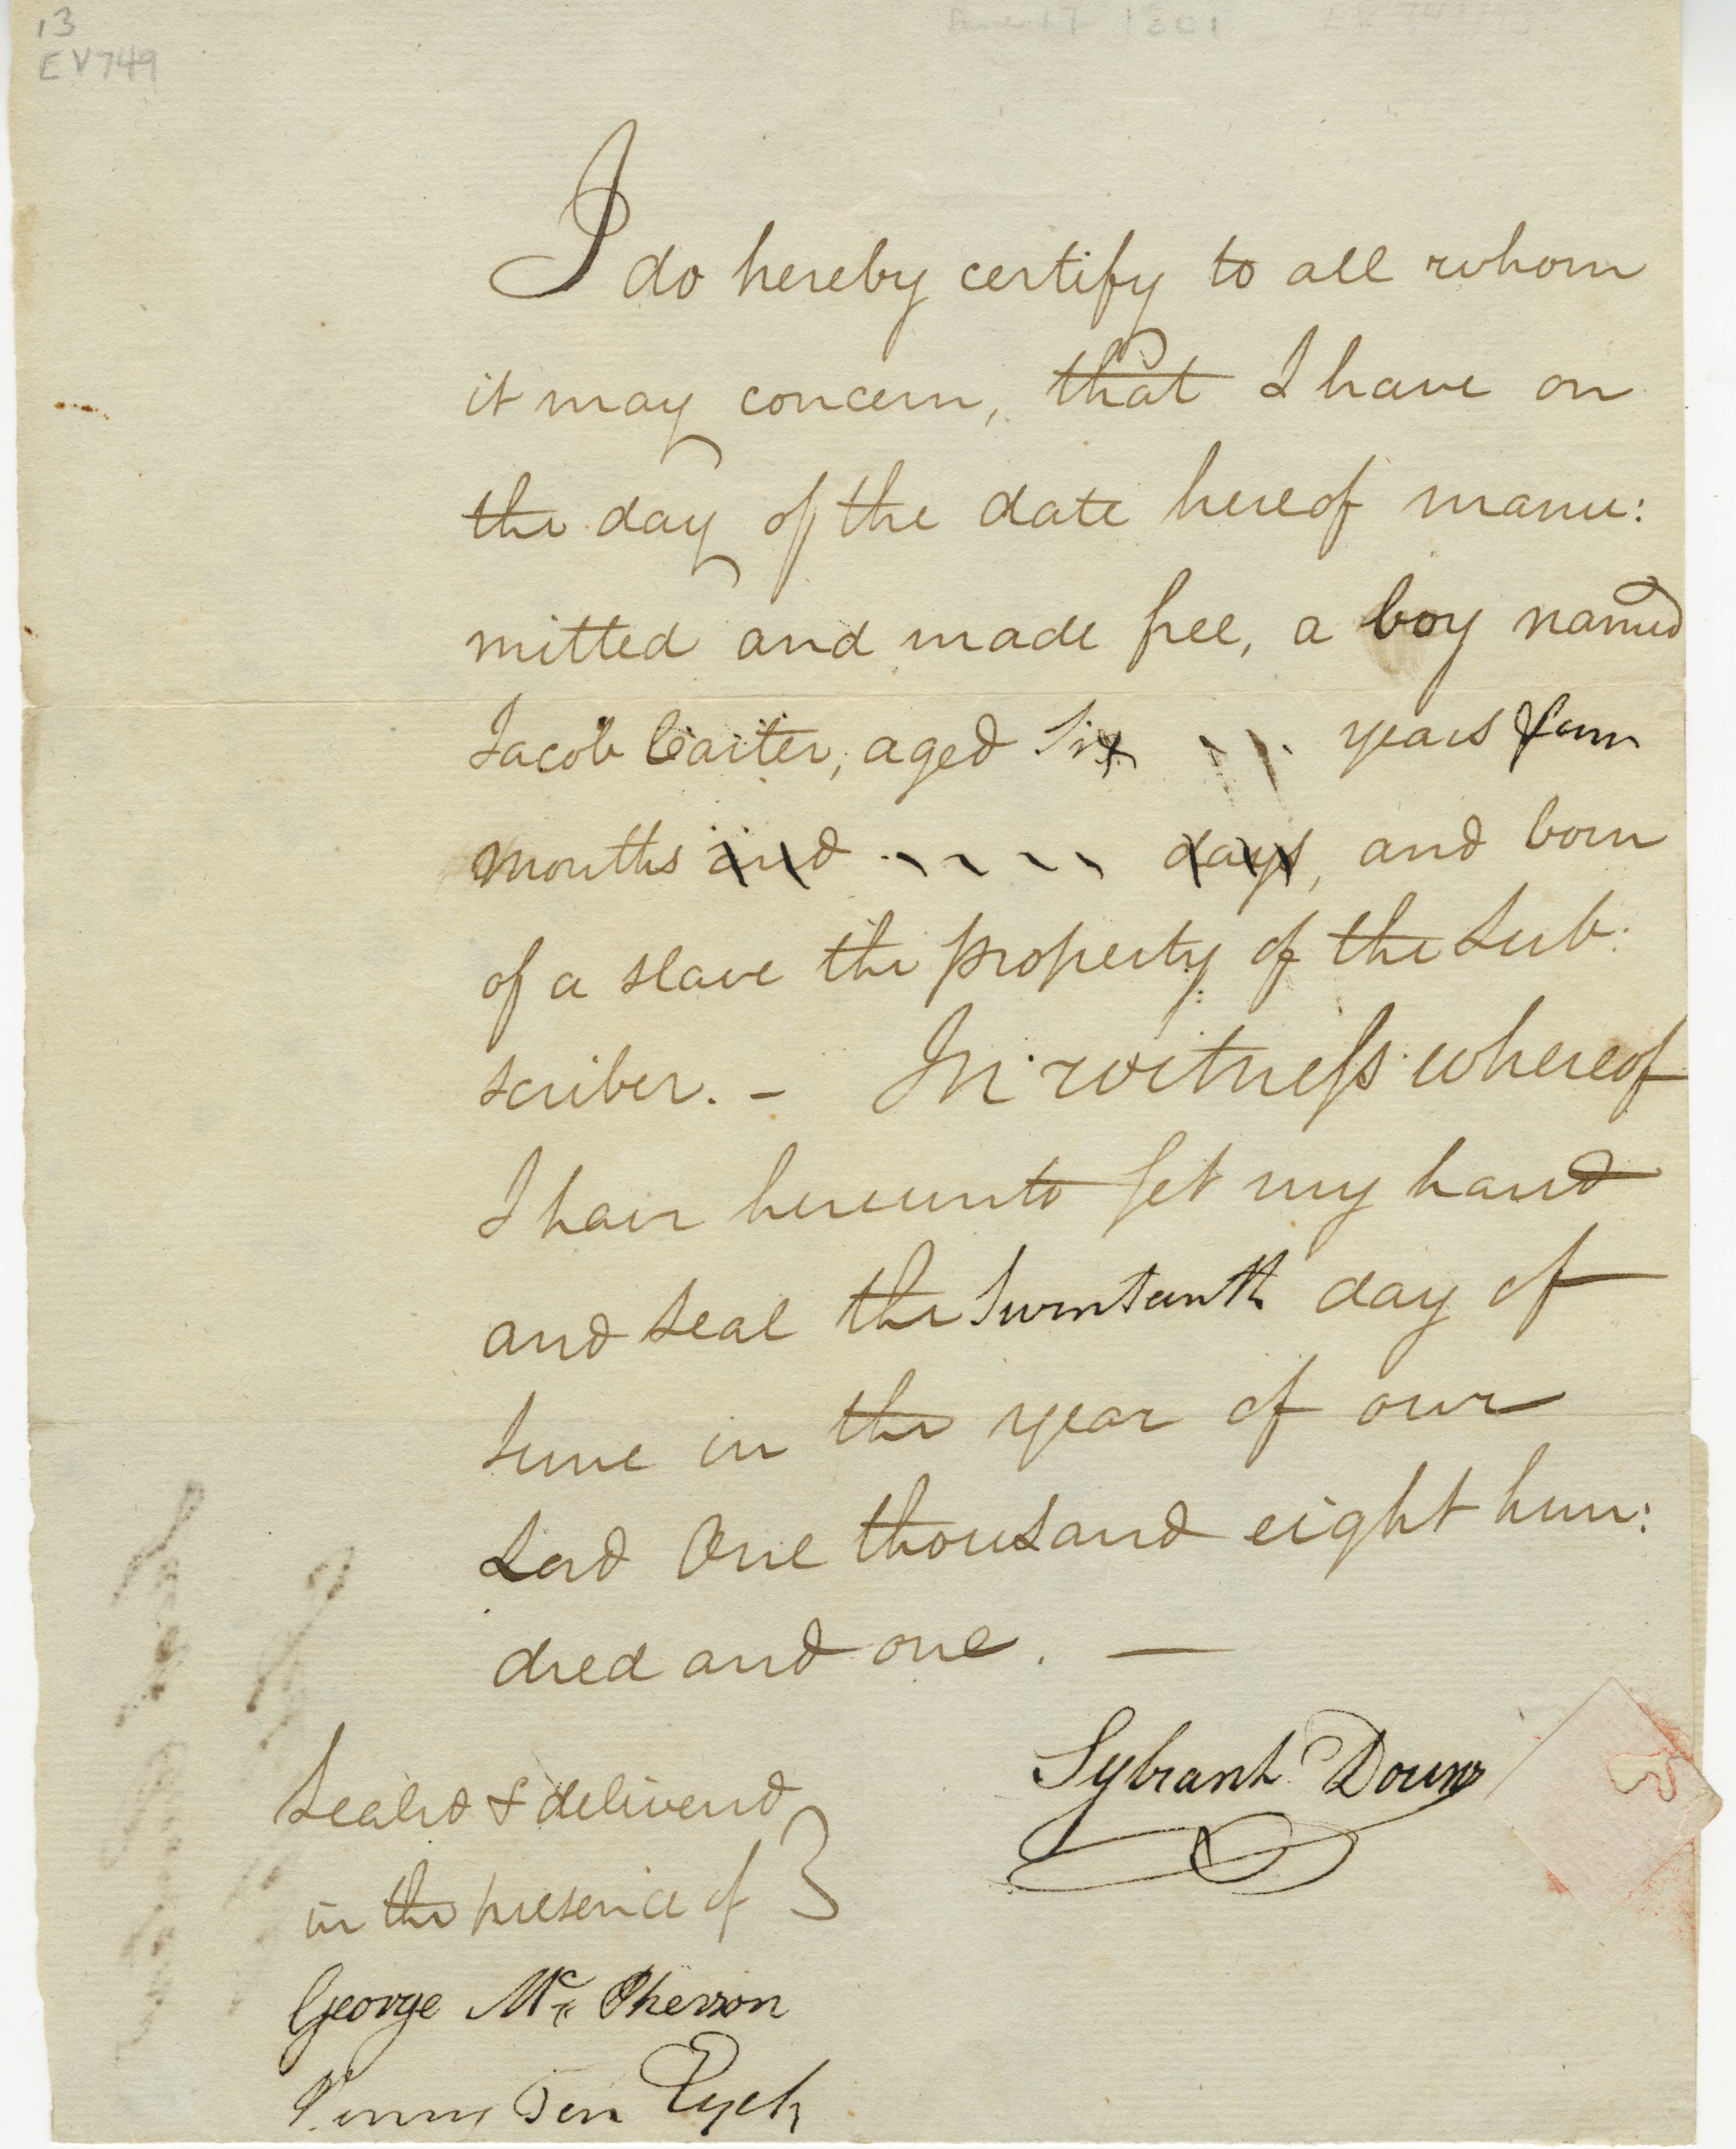 13
EV749
1801
I do hereby certify to all whom
it may concern, that I have on
the day of the date hereof manu:
mitted and made free, a boy named
Jacob Carter, aged Six years four
months and days, and born
of a slave the property of the Sub:
scriber. – In witness whereof
I have hereunto set my hand
and seal the Seventeenth day of
June in the year of our
Lord One thousand eight hun:
dred and one. —
Sybrant Douw
Sealed & delivered
in the presence of
George Mc Pherson
Ten Eyck